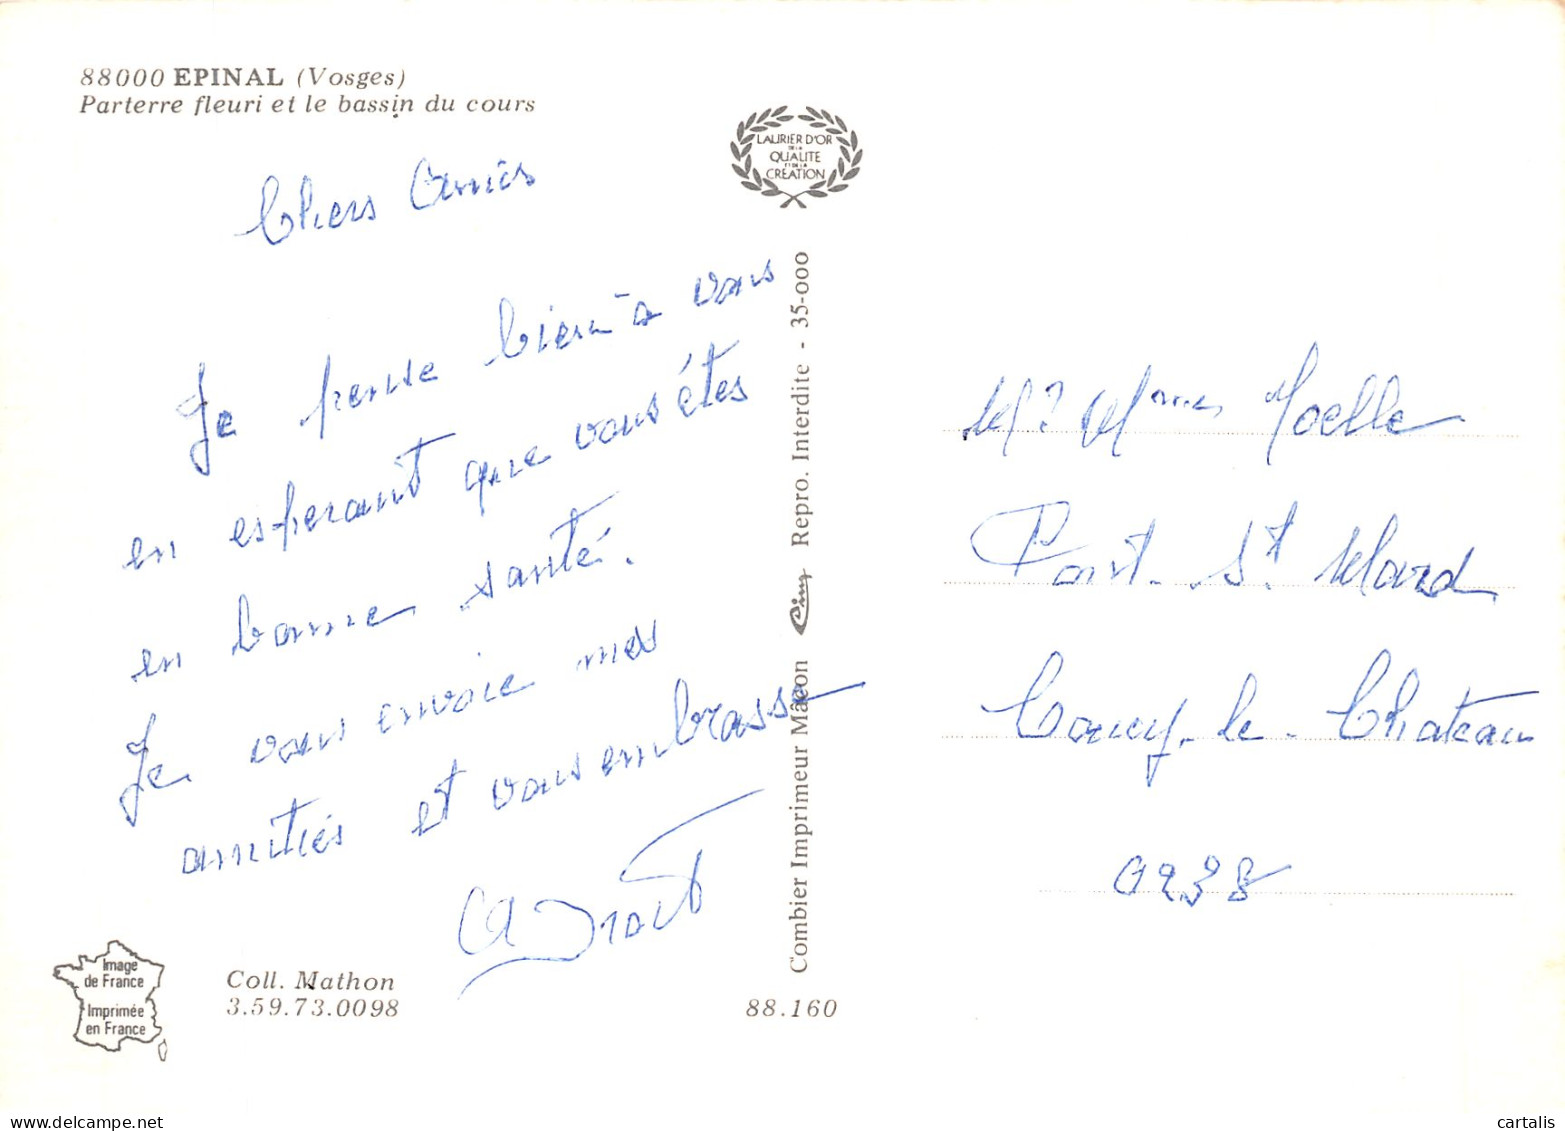 88000 EPINAL (Vosges)
Parterre fleuri et le bassin du cours
LAURIER D'OR
DE LA
QUALITE
ET DE LA
CREATION
Chers Amis
Je pense bien à vous
en esperant que vous étes
en bonne santé.
Je vous envoie mes
amitiés et vous embrasse
Combier Imprimeur Mâcon Cim Repro. Interdite - 35-000
Mr Mmes Noelle
Pont-St Mard
Coucy-le-Chateau
0238
Image
de France
Imprimée
en France
Coll. Mathon
3.59.73.0098
88.160
cartalis